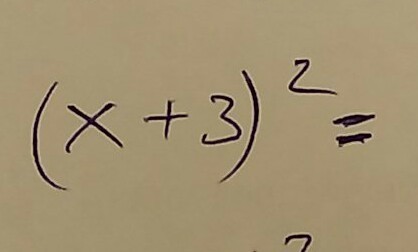 (x+3)² =